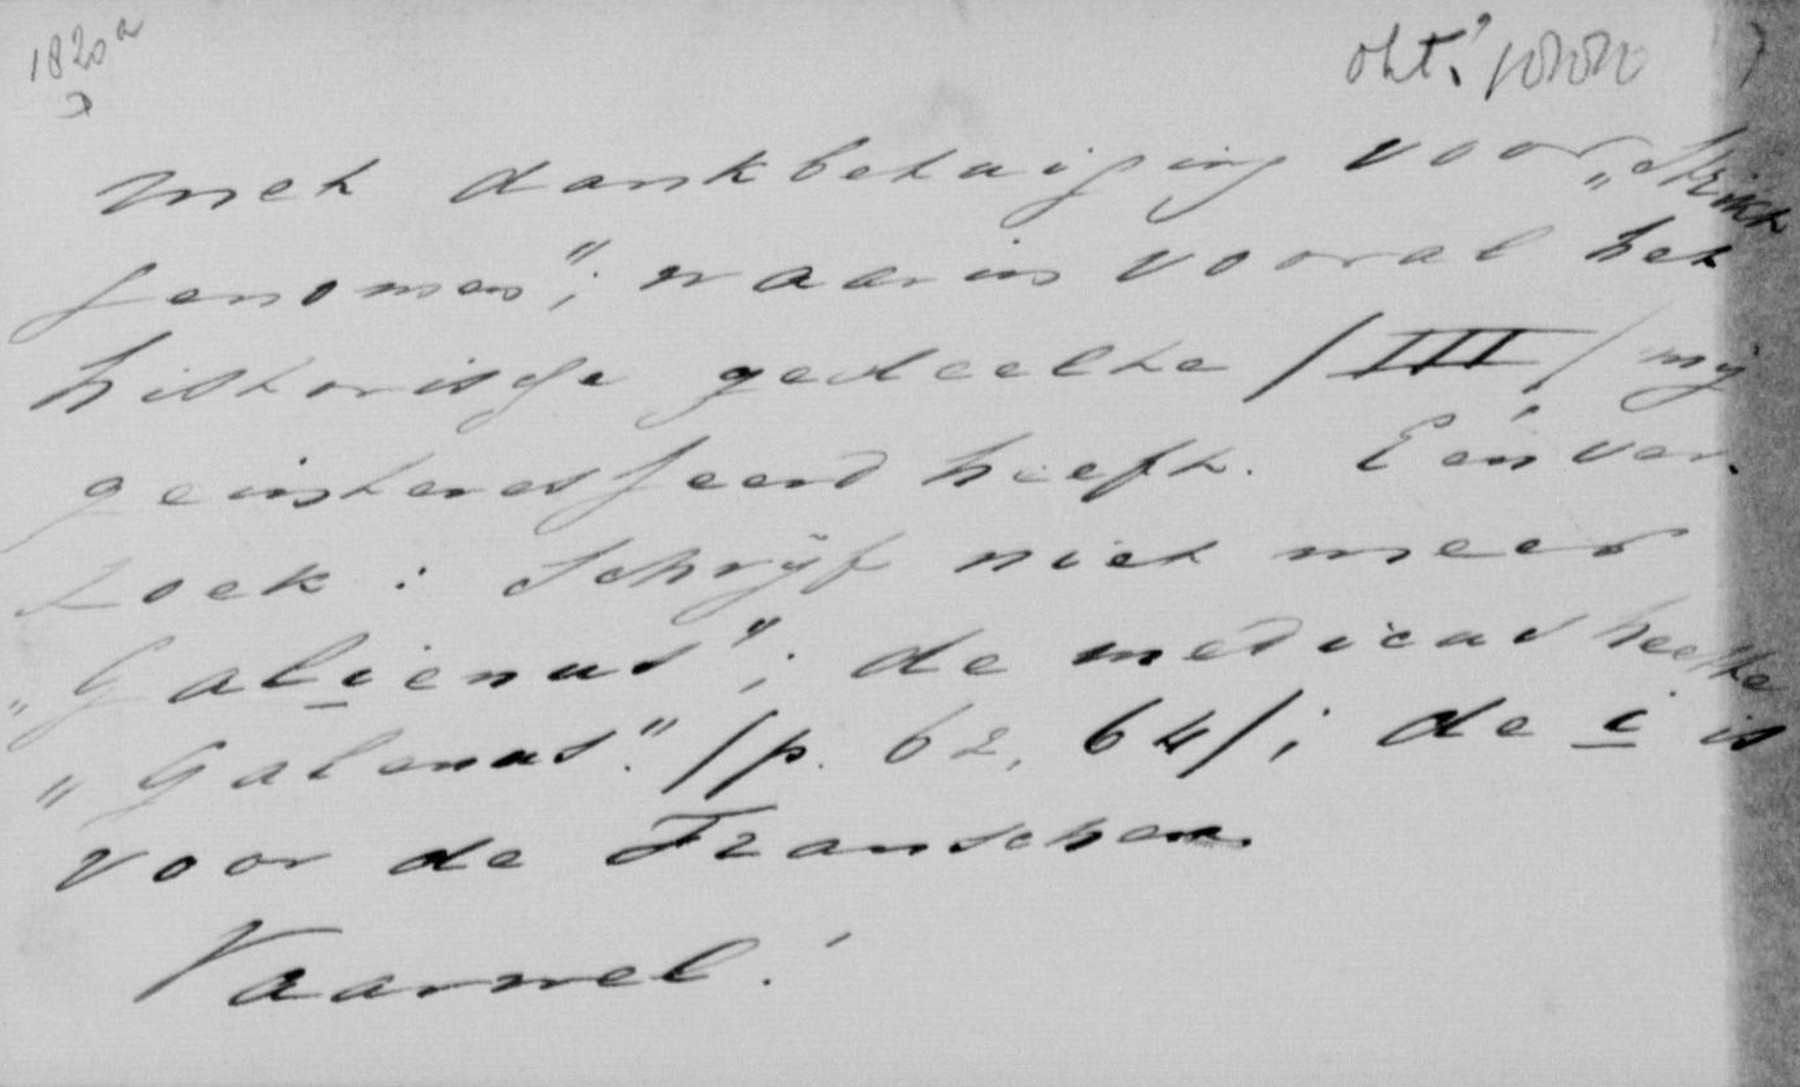 1820a
okt.
met dankbetuiging voor „Strikt
genomen”; waarin vooral het
historische gedeelte /III/ mij
geinteresseerd heeft. Eén ver-
zoek: Schrijf niet meer
„Galienus”; de medicus heette
„Galenus.” /p. 62, 64/; de i is
voor de Franschen.
Vaarwel!